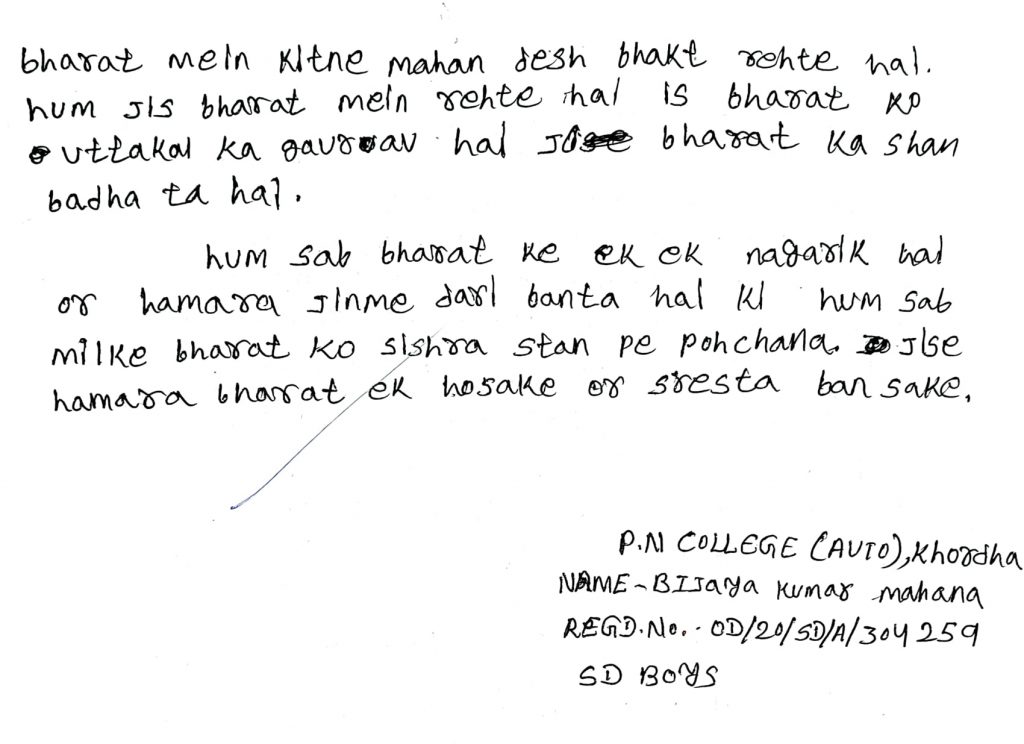 bharat mein kitne mahan desh bhakt rehte hai.
hum jis bharat mein rehte hai is bharat ko
uttakal ka gaurav hai jo bharat ka shan
badha ta hai.
hum sab bharat ke ek ek nagarik hai
or hamara jinme dari banta hai ki hum sab
milke bharat ko sishra stan pe pohchana. jise
hamara bharat ek hosake or sresta ban sake.
P.N COLLEGE (AUTO), Khordha
NAME - BIJaya kumar mahana
REGD.No. - OD/20/SD/A/304259
SD BOYS